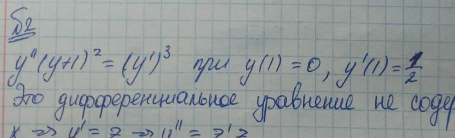 №2
y"(y+1)² = (y')³ при y(1)=0, y'(1)=1/2
Это дифференциальное уравнение не содер
x => y' = z => y" = z'z